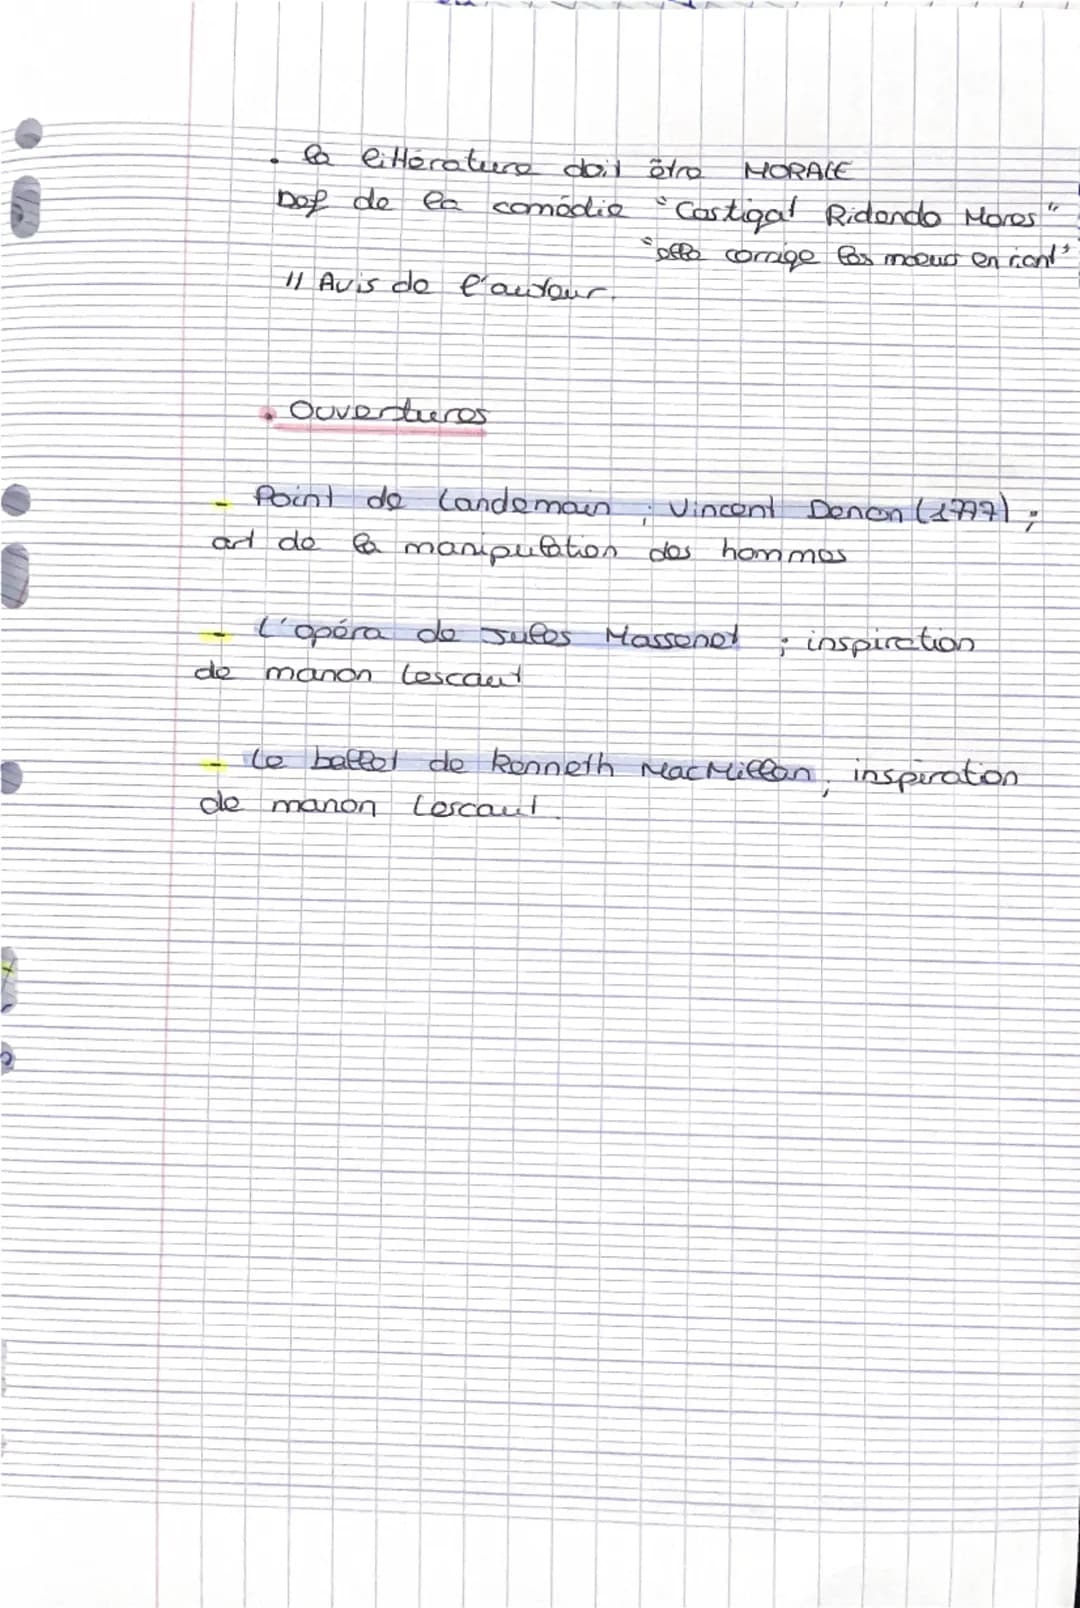 . la littérature doit être MORALE
Def de la comédie "Castigat Ridendo Mores"
"elle corrige les moeurs en riant"
// Avis de l'auteur.
. Ouvertures
- Point de Lendemain ; Vincent Denon (1777) ;
art de la manipulation des hommes
- L'opéra de Jules Massenet ; inspiration
de manon Lescaut
- Le ballet de Kenneth MacMillan, inspiration
de manon Lescaut.